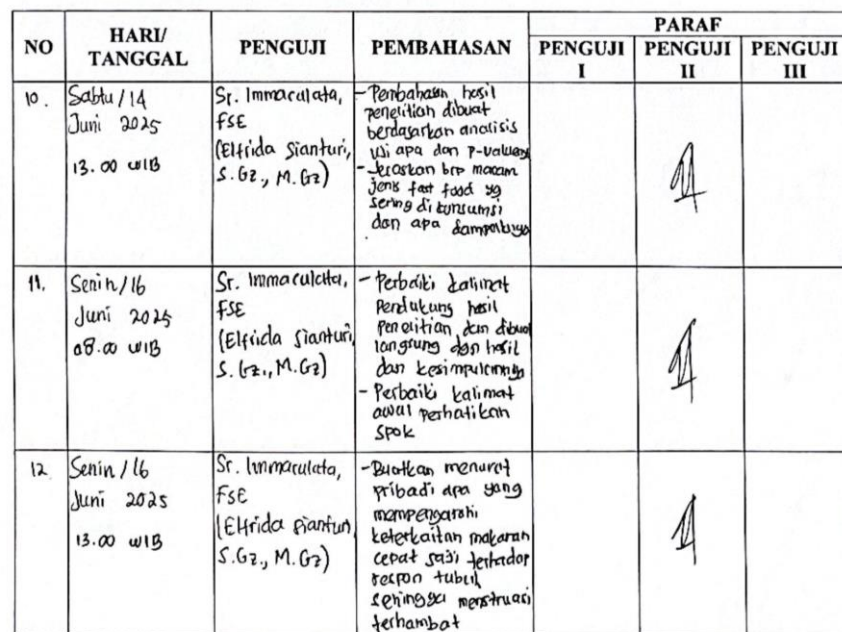 NO HARI/ TANGGAL PENGUJI PEMBAHASAN PARAF
PENGUJI I PENGUJI II PENGUJI III
10. Sabtu/14
Juni 2025
13.00 WIB
Sr. Immaculata,
FSE
(Elfrida Sianturi,
S.Gz., M.Gz)
- Pembahasan hasil
penelitian dibuat
berdasarkan analisis
uji apa dan p-valuenya
- Jelaskan brp macam
jenis fast food yg
sering di konsumsi
dan apa dampaknya
11. Senin/16
Juni 2025
08.00 WIB
Sr. Immaculata,
FSE
(Elfrida Sianturi,
S.Gz., M.Gz)
- Perbaiki kalimat
Pendukung hasil
penelitian dan dibuat
langsung dgn hasil
dan kesimpulannya
- Perbaiki kalimat
awal perhatikan
SPOK
12 Senin/16
Juni 2025
13.00 WIB
Sr. Immaculata,
FSE
(Elfrida Sianturi,
S.Gz., M.Gz)
- Buatkan menurut
pribadi apa yang
mempengaruhi
keterkaitan makanan
cepat saji terhadap
respon tubuh
sehingga menstruasi
terhambat